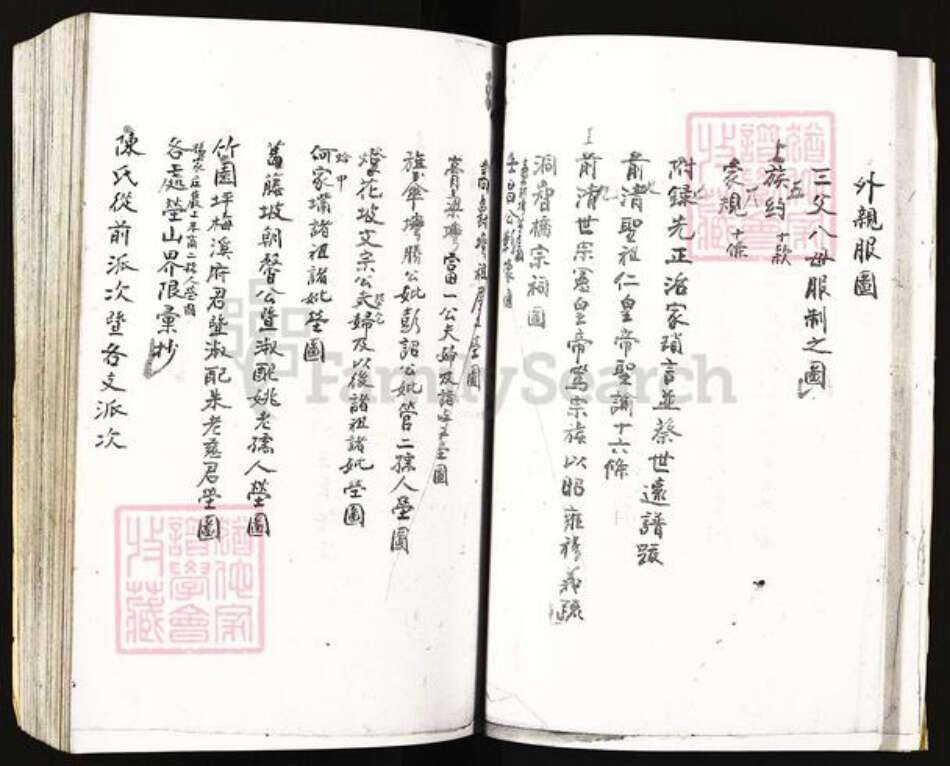 外親服圖
三父八母服制之圖
族約十款
五
家規十條
八
附錄先正治家瑣言並蔡世遠譜跋
前清聖祖仁皇帝聖諭十六條
前清世宗憲皇帝篤宗族以昭雍穆義疏
洞脊橋宗祠圖
富一公夫婦及諸
旗傘壋勝公妣彭詔公妣管二孺人塋圖
燈花坡文宗公夫婦及以後諸祖諸妣塋圖
蛤甲
何家壩諸祖諸妣塋圖
舊藤坡朝督公暨淑配姚老孺人塋圖
竹園坪梅溪府君暨淑配朱老慈君塋圖
各處塋山界限彙抄
陳氏從前派次暨各支派次
猶他家譜學會收藏
猶他家譜學會收藏
FamilySearch